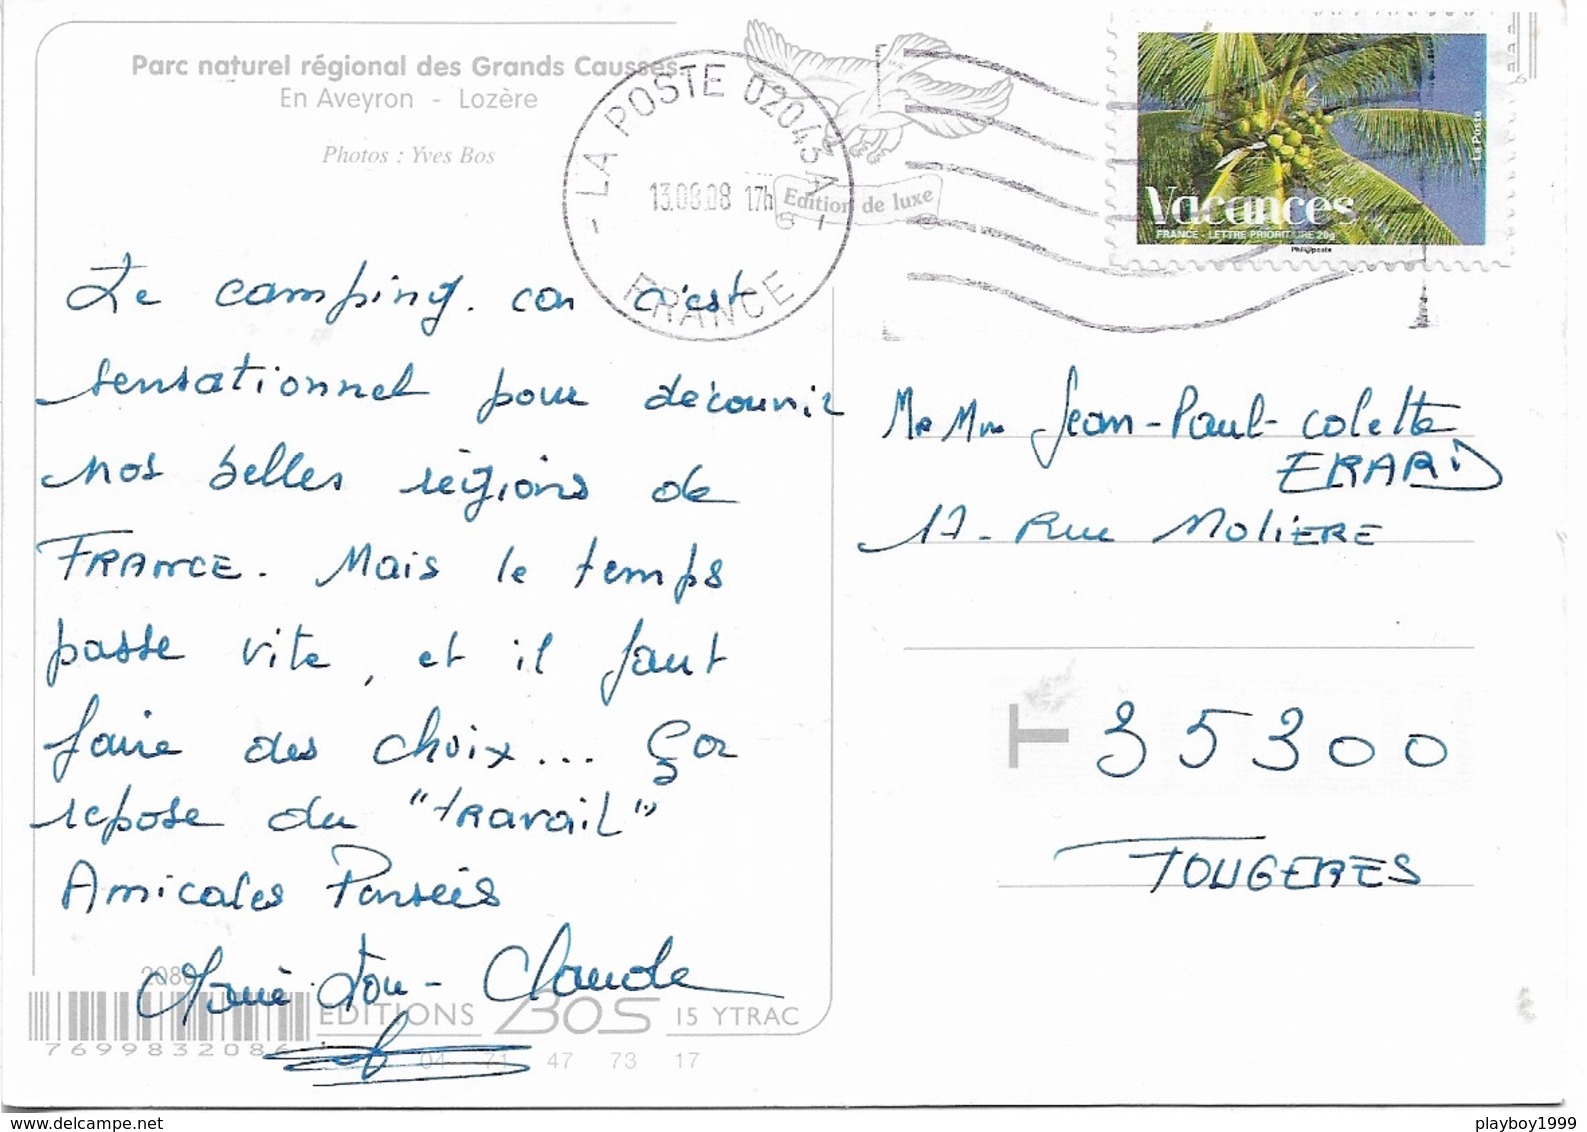 Parc naturel régional des Grands Causses.
En Aveyron - Lozère
Photos : Yves Bos
LA POSTE 02043A
13.08.08 17h
FRANCE
Edition de luxe
La Poste
Vacances
FRANCE - LETTRE PRIORITAIRE 20g
Phil@poste
Le camping. car c'est
sensationnel pour découvrir
nos belles régions de
FRANCE. Mais le temps
passe vite, et il faut
faire des choix... Ça
repose du "travail"
Amicales Pensées
Claude
Mr Mme Jean-Paul-Colette
ERARD
17- Rue MOLIERE
35300
FOUGERES
2086
EDITIONS BOS 15 YTRAC
7699832086
04 71 47 73 17
playboy1999